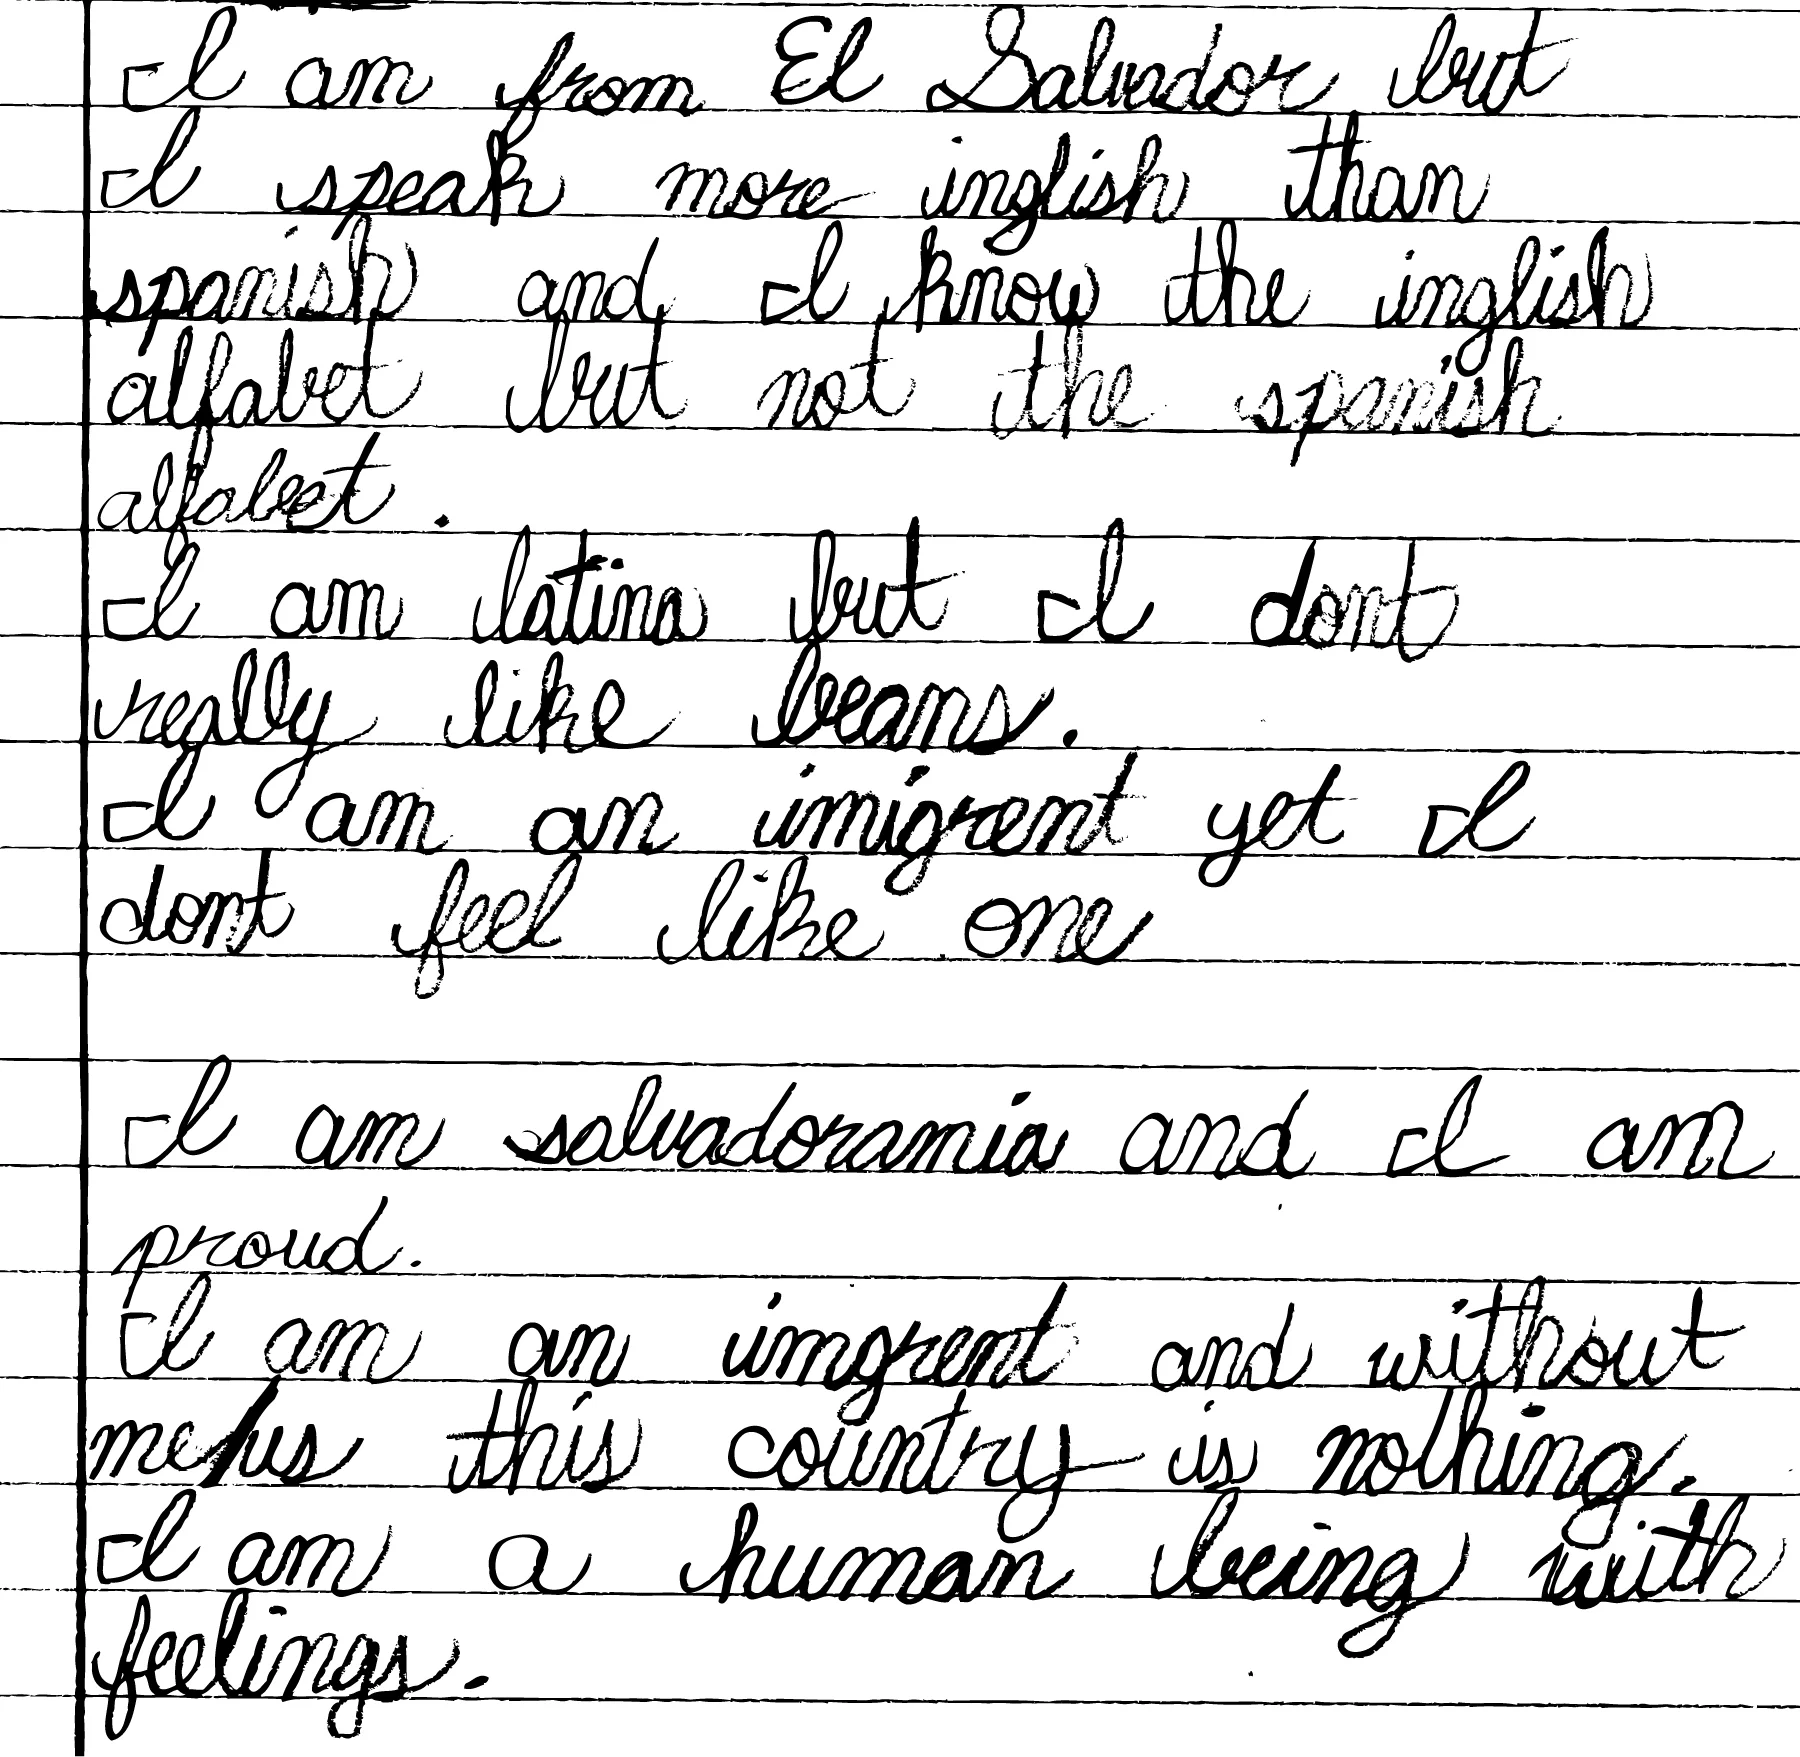 I am from El Salvador but
I speak more inglish than
spanish and I know the inglish
alfabet but not the spanish
alfabet.
I am latina but I dont
really like beans.
I am an imigrent yet I
dont feel like one
I am salvadorania and I am
proud.
I am an imgrent and without
me/us this country is nothing.
I am a human being with
feelings.